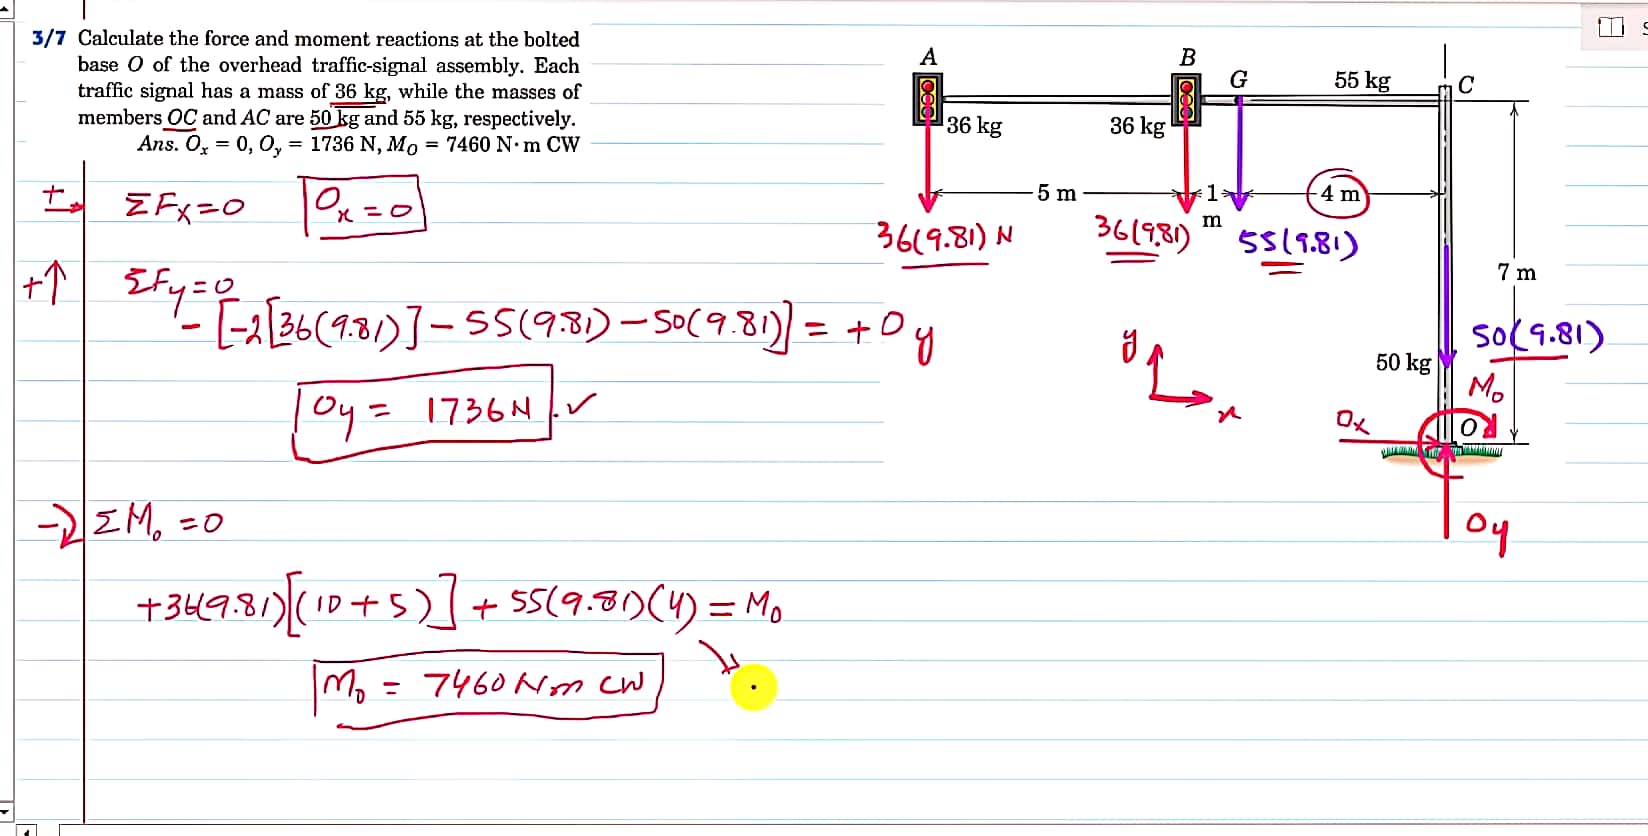 3/7 Calculate the force and moment reactions at the bolted
base O of the overhead traffic-signal assembly. Each
traffic signal has a mass of 36 kg, while the masses of
members OC and AC are 50 kg and 55 kg, respectively.
Ans. Oₓ = 0, O_y = 1736 N, M_O = 7460 N·m CW
A
B
G
55 kg
C
36 kg
36 kg
5 m
1
m
4 m
36(9.81) N
36(9.81)
55(9.81)
7 m
50(9.81)
50 kg
M₀
Oₓ
O
O_y
y
x
+
ΣFₓ=0
Oₓ=0
+↑
ΣF_y=0
-[-2[36(9.81)]-55(9.81)-50(9.81)] = +O_y
O_y = 1736N
ΣM₀ =0
+36(9.81)[(10+5)] + 55(9.81)(4) = M₀
M₀ = 7460 Nm CW